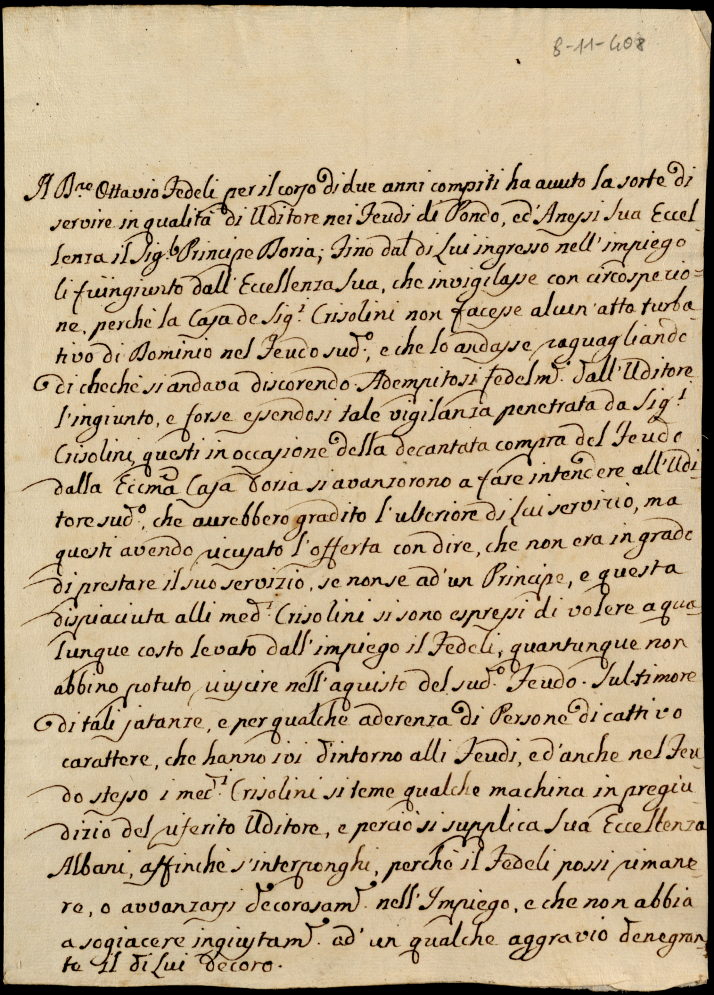 8-11-408
Il B.ne Ottavio Fedeli per il corso di due anni compiti ha avuto la sorte di
servire in qualità di Uditore nei Feudi di Pondo, ed'Anessi Sua Eccel
lenza il Sig.r Principe Doria; Fino dal di Lui ingresso nell'impiego
li fù ingiunto dall'Eccellenza Sua, che invigilasse con circospezio=
ne, perche la Casa de Sig.i Crisolini non facesse alcun'atto turba
tivo di Dominio nel Feudo sud.o, e che lo andasse raguagliando
di cheche si andava discorendo Adempitosi fedelm.e dall'Uditore
l'ingiunto, e forse essendosi tale vigilanza penetrata da Sig.i
Crisolini, questi in occasione della decantata compra del Feudo
dalla Eccma Casa Doria si avanzorono a fare intendere all'Udi
tore sud.o, che aurebbero gradito l'ulteriore di Lui servizio, ma
questi avendo ricusato l'offerta con dire, che non era in grado
di prestare il suo servizio, se non se ad'un Principe, e questa
dispiaciuta alli med.i Crisolini si sono espressi di volere a qua
lunque costo levato dall'impiego il Fedeli, quantunque non
abbino potuto riuscire nell'aquisto del sud.o Feudo. Sul timore
di tali jatanze, e per qualche aderenza di Persone di cattivo
carattere, che hanno ivi d'intorno alli Feudi, ed'anche nel Feu
do stesso i med.i Crisolini si teme qualche machina in pregiu
dizio del riferito Uditore, e perciò si supplica Sua Eccellenza
Albani, affinchè s'interponghi, perchè il Fedeli possi rimane
re, o avvanzarsi decorosam.e nell'Impiego, e che non abbia
a sogiacere ingiustam.e ad'un qualche aggravio denegran
te il di Lui decoro.